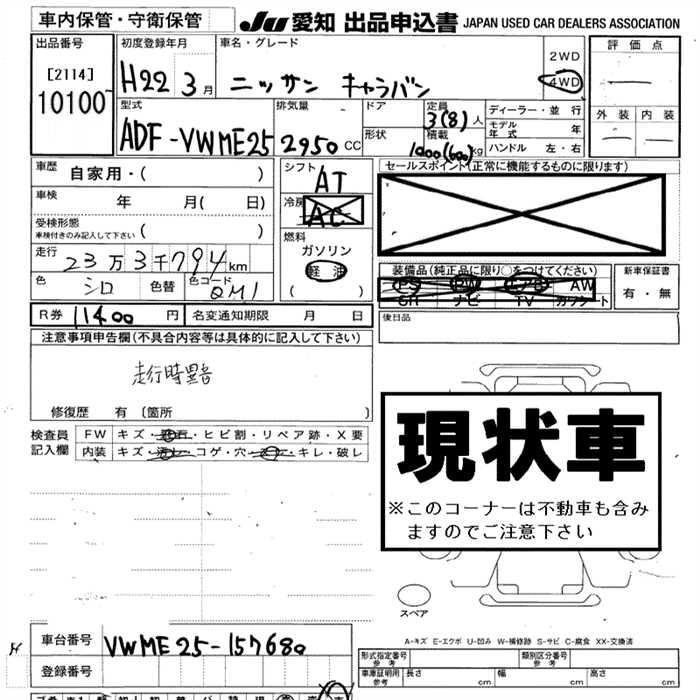 車内保管・守衛保管 JU 愛知 出品申込書 JAPAN USED CAR DEALERS ASSOCIATION
出品番号 初度登録年月 車名・グレード 2WD 評価点
[2114] H22 3月 ニッサン キャラバン 4WD
10100 型式 排気量 ドア 定員 3(8)人 ディーラー・並行 外装 内装
ADF-VWME25 2950 CC 形状 積載 1000(600)kg モデル年式 年
ハンドル 左・右
車歴 自家用・( ) シフト AT セールスポイント(正常に機能するものに限ります)
車検 年 月( 日) 冷房 AC
受検形態 ( ) 燃料
車検付きのみ記入して下さい ガソリン
走行 23万3千794km 軽油 装備品(純正品に限り○をつけてください) 新車保証書
色 シロ 色替 色コード QM1 ( ) PS PW エアB AW 有・無
SR ナビ TV カワシート
R券 11400円 名変通知期限 月 日 後日品
注意事項申告欄(不具合内容等は具体的に記入して下さい)
走行時異音
修復歴 有 〔箇所 〕
検査員 FW キズ・飛石・ヒビ割・リペア跡・X要
記入欄 内装 キズ・汚れ・コゲ・穴・・キレ・破レ
現状車
※このコーナーは不動車も含み
ますのでご注意下さい
スペア
A-キズ E-エクボ U-凹み W-補修跡 S-サビ C-腐食 XX-交換済
車台番号 VWME25-157680
登録番号
形式指定番号 参考 類別区分番号 参考
車庫証明用 参考 長さ cm 幅 cm 高さ cm